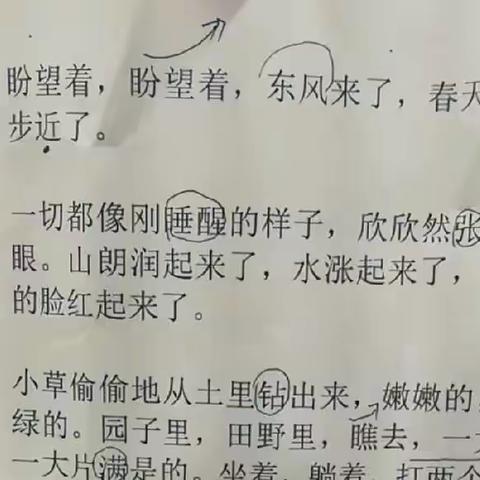 盼望着，盼望着，东风来了，春天
步近了。
一切都像刚睡醒的样子，欣欣然张
眼。山朗润起来了，水涨起来了，
的脸红起来了。
小草偷偷地从土里钻出来，嫩嫩的，
绿的。园子里，田野里，瞧去，一大
一大片满是的。坐着，躺着，打两个